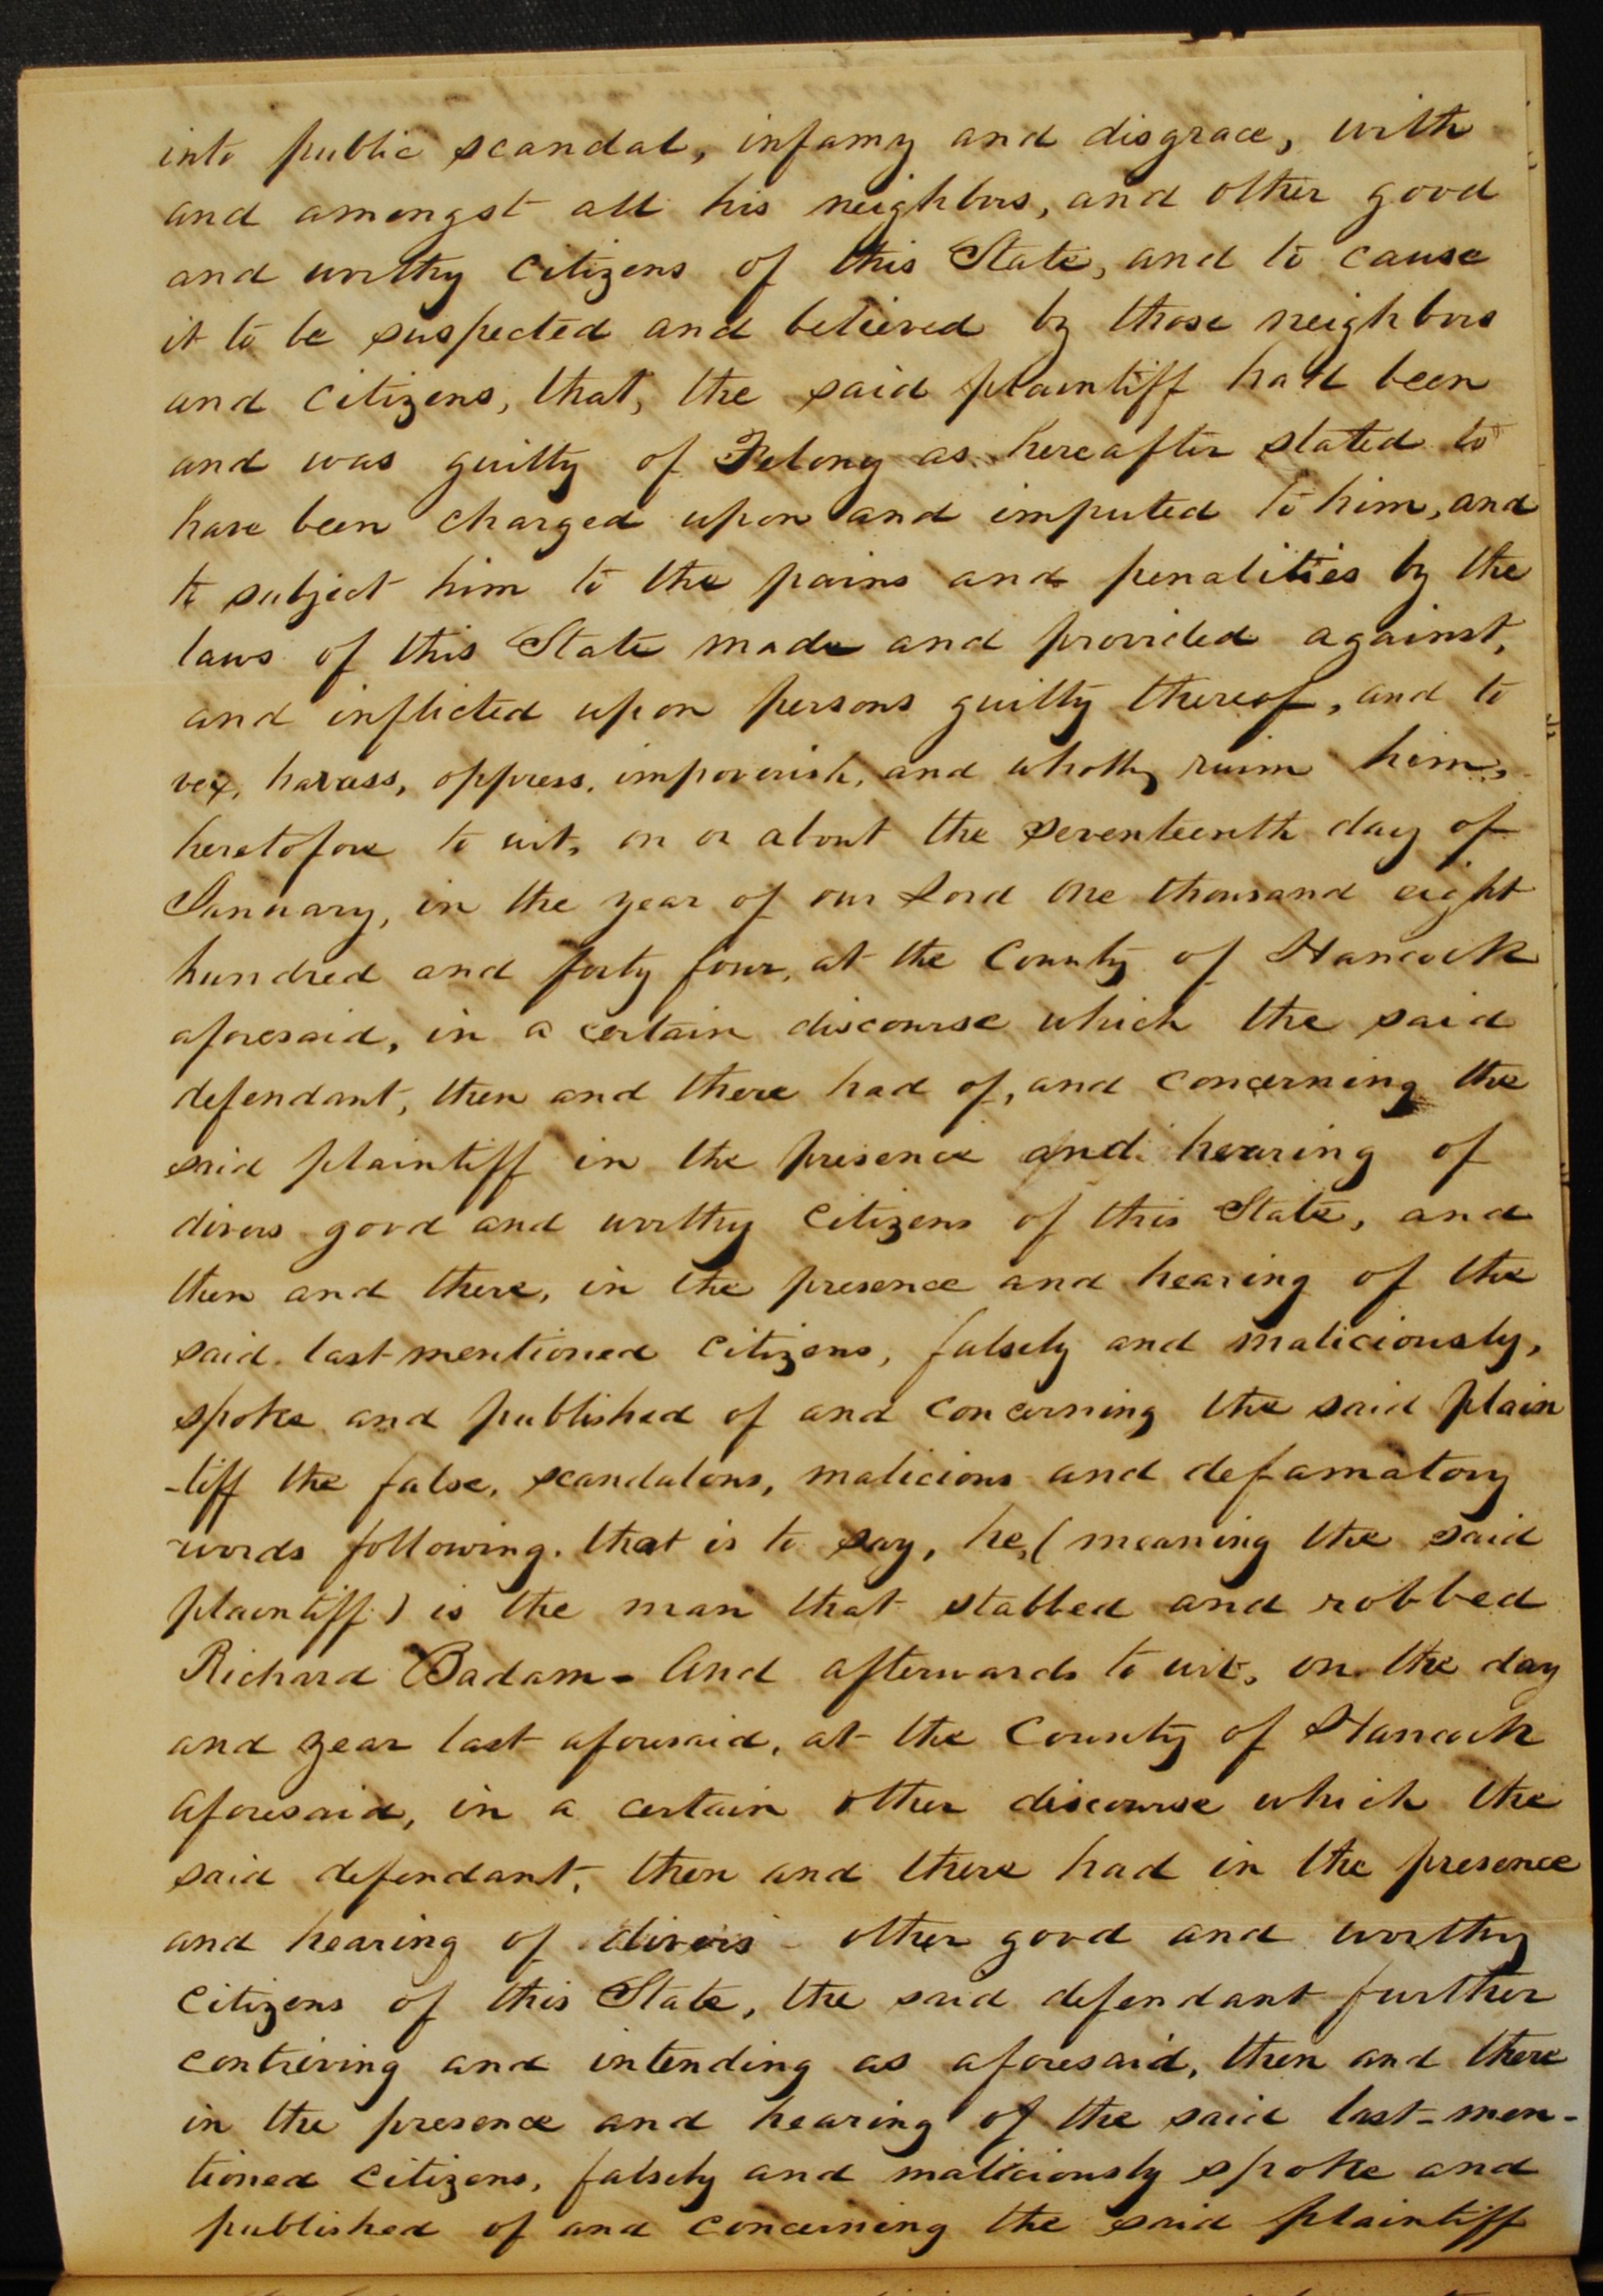 into public scandal, infamy and disgrace, with
and amongst all his neighbors, and other good
and worthy citizens of this State, and to cause
it to be suspected and believed by those neighbors
and citizens, that, the said plaintiff had been
and was guilty of Felony as hereafter stated to
have been charged upon and imputed to him, and
to subject him to the pains and penalities by the
laws of this State made and provided against,
and inflicted upon persons guilty thereof, and to
vex, harass, oppress, impoverish, and wholly ruin him,
heretofore to wit, on or about the seventeenth day of
January, in the year of our Lord one thousand eight
hundred and forty four, at the County of Hancock
aforesaid, in a certain discourse which the said
defendant, then and there had of, and concerning the
said plaintiff in the presence and hearing of
divers good and worthy citizens of this State, and
then and there, in the presence and hearing of the
said last-mentioned citizens, falsely and maliciously,
spoke and published of and concerning the said plain
-tiff the false, scandalous, malicious and defamatory
words following. that is to say, he, (meaning the said
plaintiff) is the man that stabbed and robbed
Richard Badam - And afterwards to wit, on the day
and year last aforesaid, at the County of Hancock
aforesaid, in a certain other discourse which the
said defendant, then and there had in the presence
and hearing of divers other good and worthy
citizens of this State, the said defendant further
contriving and intending as aforesaid, then and there
in the presence and hearing of the said last-men-
tioned citizens, falsely and maliciously spoke and
published of and concerning the said plaintiff